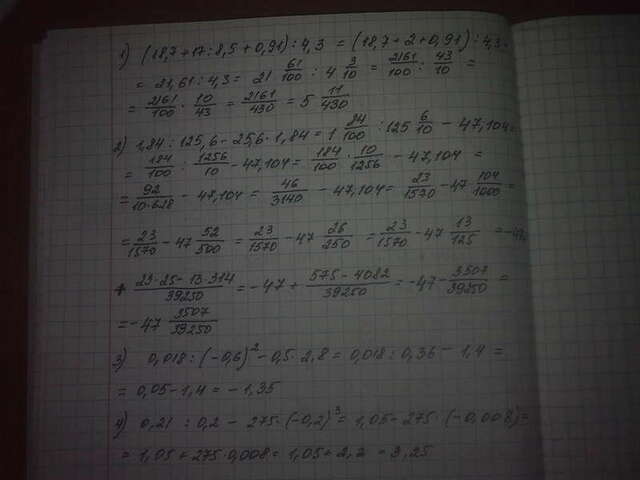 1) (18,7+17:8,5+0,91):4,3 = (18,7+2+0,91):4,3=
= 21,61:4,3 = 21 61/100 : 4 3/10 = 2161/100 : 43/10 =
= 2161/100 · 10/43 = 2161/430 = 5 11/430
2) 1,84:125,6-25,6·1,84 = 1 84/100 : 125 6/10 - 47,104=
= 184/100 : 1256/10 - 47,104 = 184/100 · 10/1256 - 47,104 =
= 92/10·628 - 47,104 = 46/3140 - 47,104 = 23/1570 - 47 104/1000 =
= 23/1570 - 47 52/500 = 23/1570 - 47 26/250 = 23/1570 - 47 13/125 = -47
+ 23·25-13·314/39250 = -47 + 575-4082/39250 = -47 - 3507/39250 =
= -47 3507/39250
3) 0,018:(-0,6)² - 0,5·2,8 = 0,018:0,36 - 1,4 =
= 0,05-1,4 = -1,35
4) 0,21:0,2 - 275·(-0,2)³ = 1,05-275·(-0,008)=
= 1,05+275·0,008 = 1,05+2,2 = 3,25